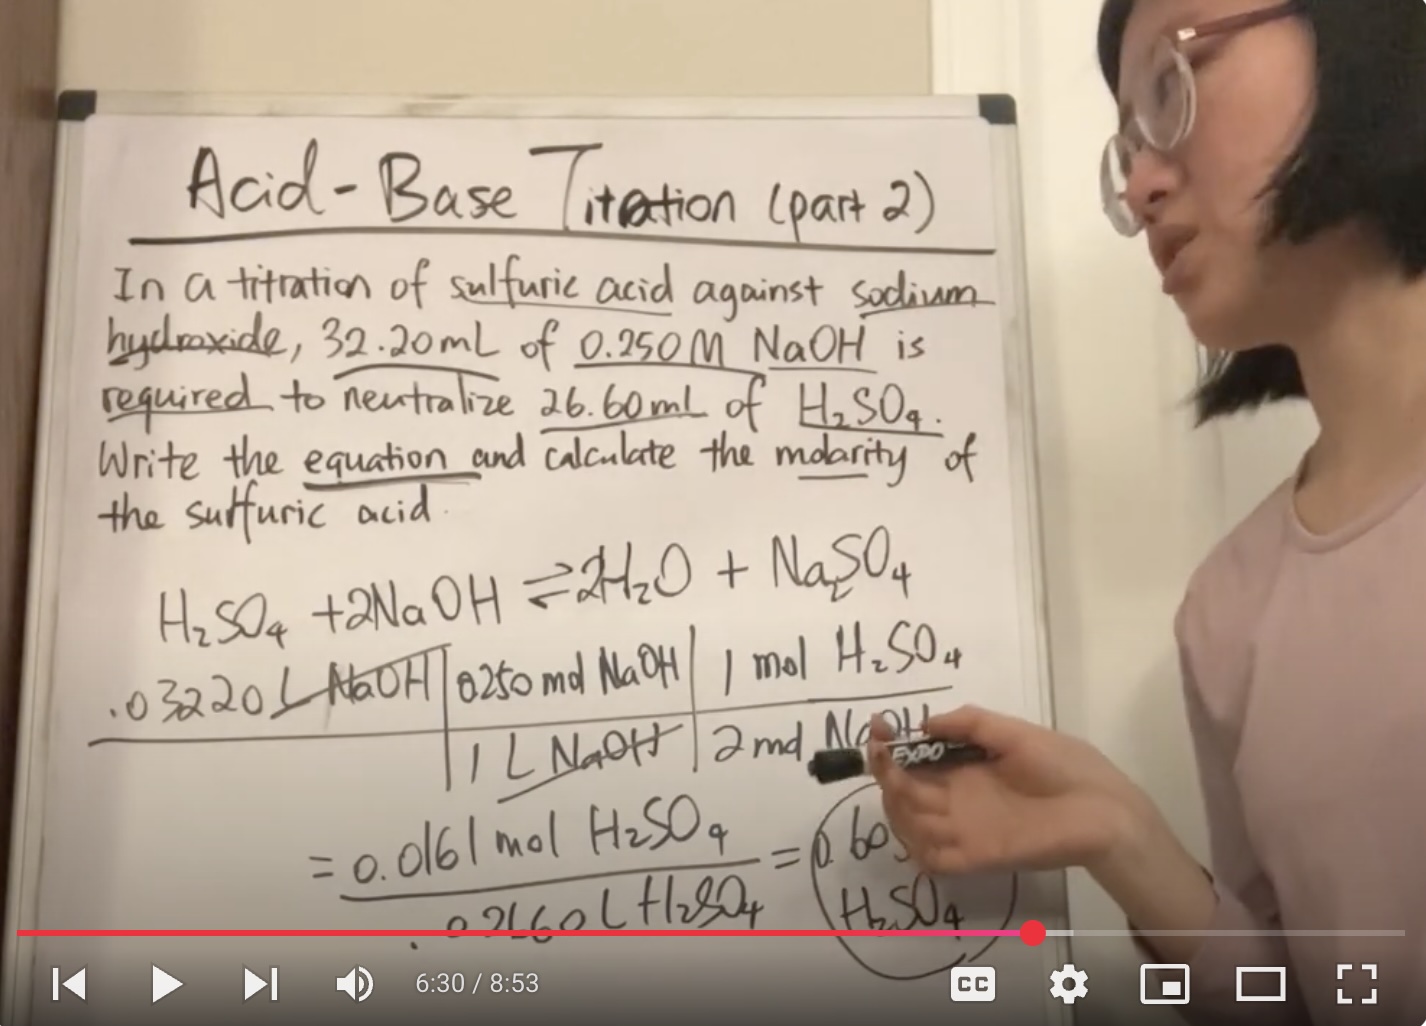 Acid-Base Titration (part 2)
In a titration of sulfuric acid against sodium
hydroxide, 32.20mL of 0.250M NaOH is
required to neutralize 26.60mL of H₂SO₄.
Write the equation and calculate the molarity of
the sulfuric acid.
H₂SO₄ + 2NaOH ⇌ 2H₂O + Na₂SO₄
.03220 L NaOH | 0.250 mol NaOH | 1 mol H₂SO₄
1 L NaOH | 2 mol NaOH
EXPO
= 0.0161 mol H₂SO₄ = 0.605
.02660 L H₂SO₄ H₂SO₄
6:30 / 8:53
CC